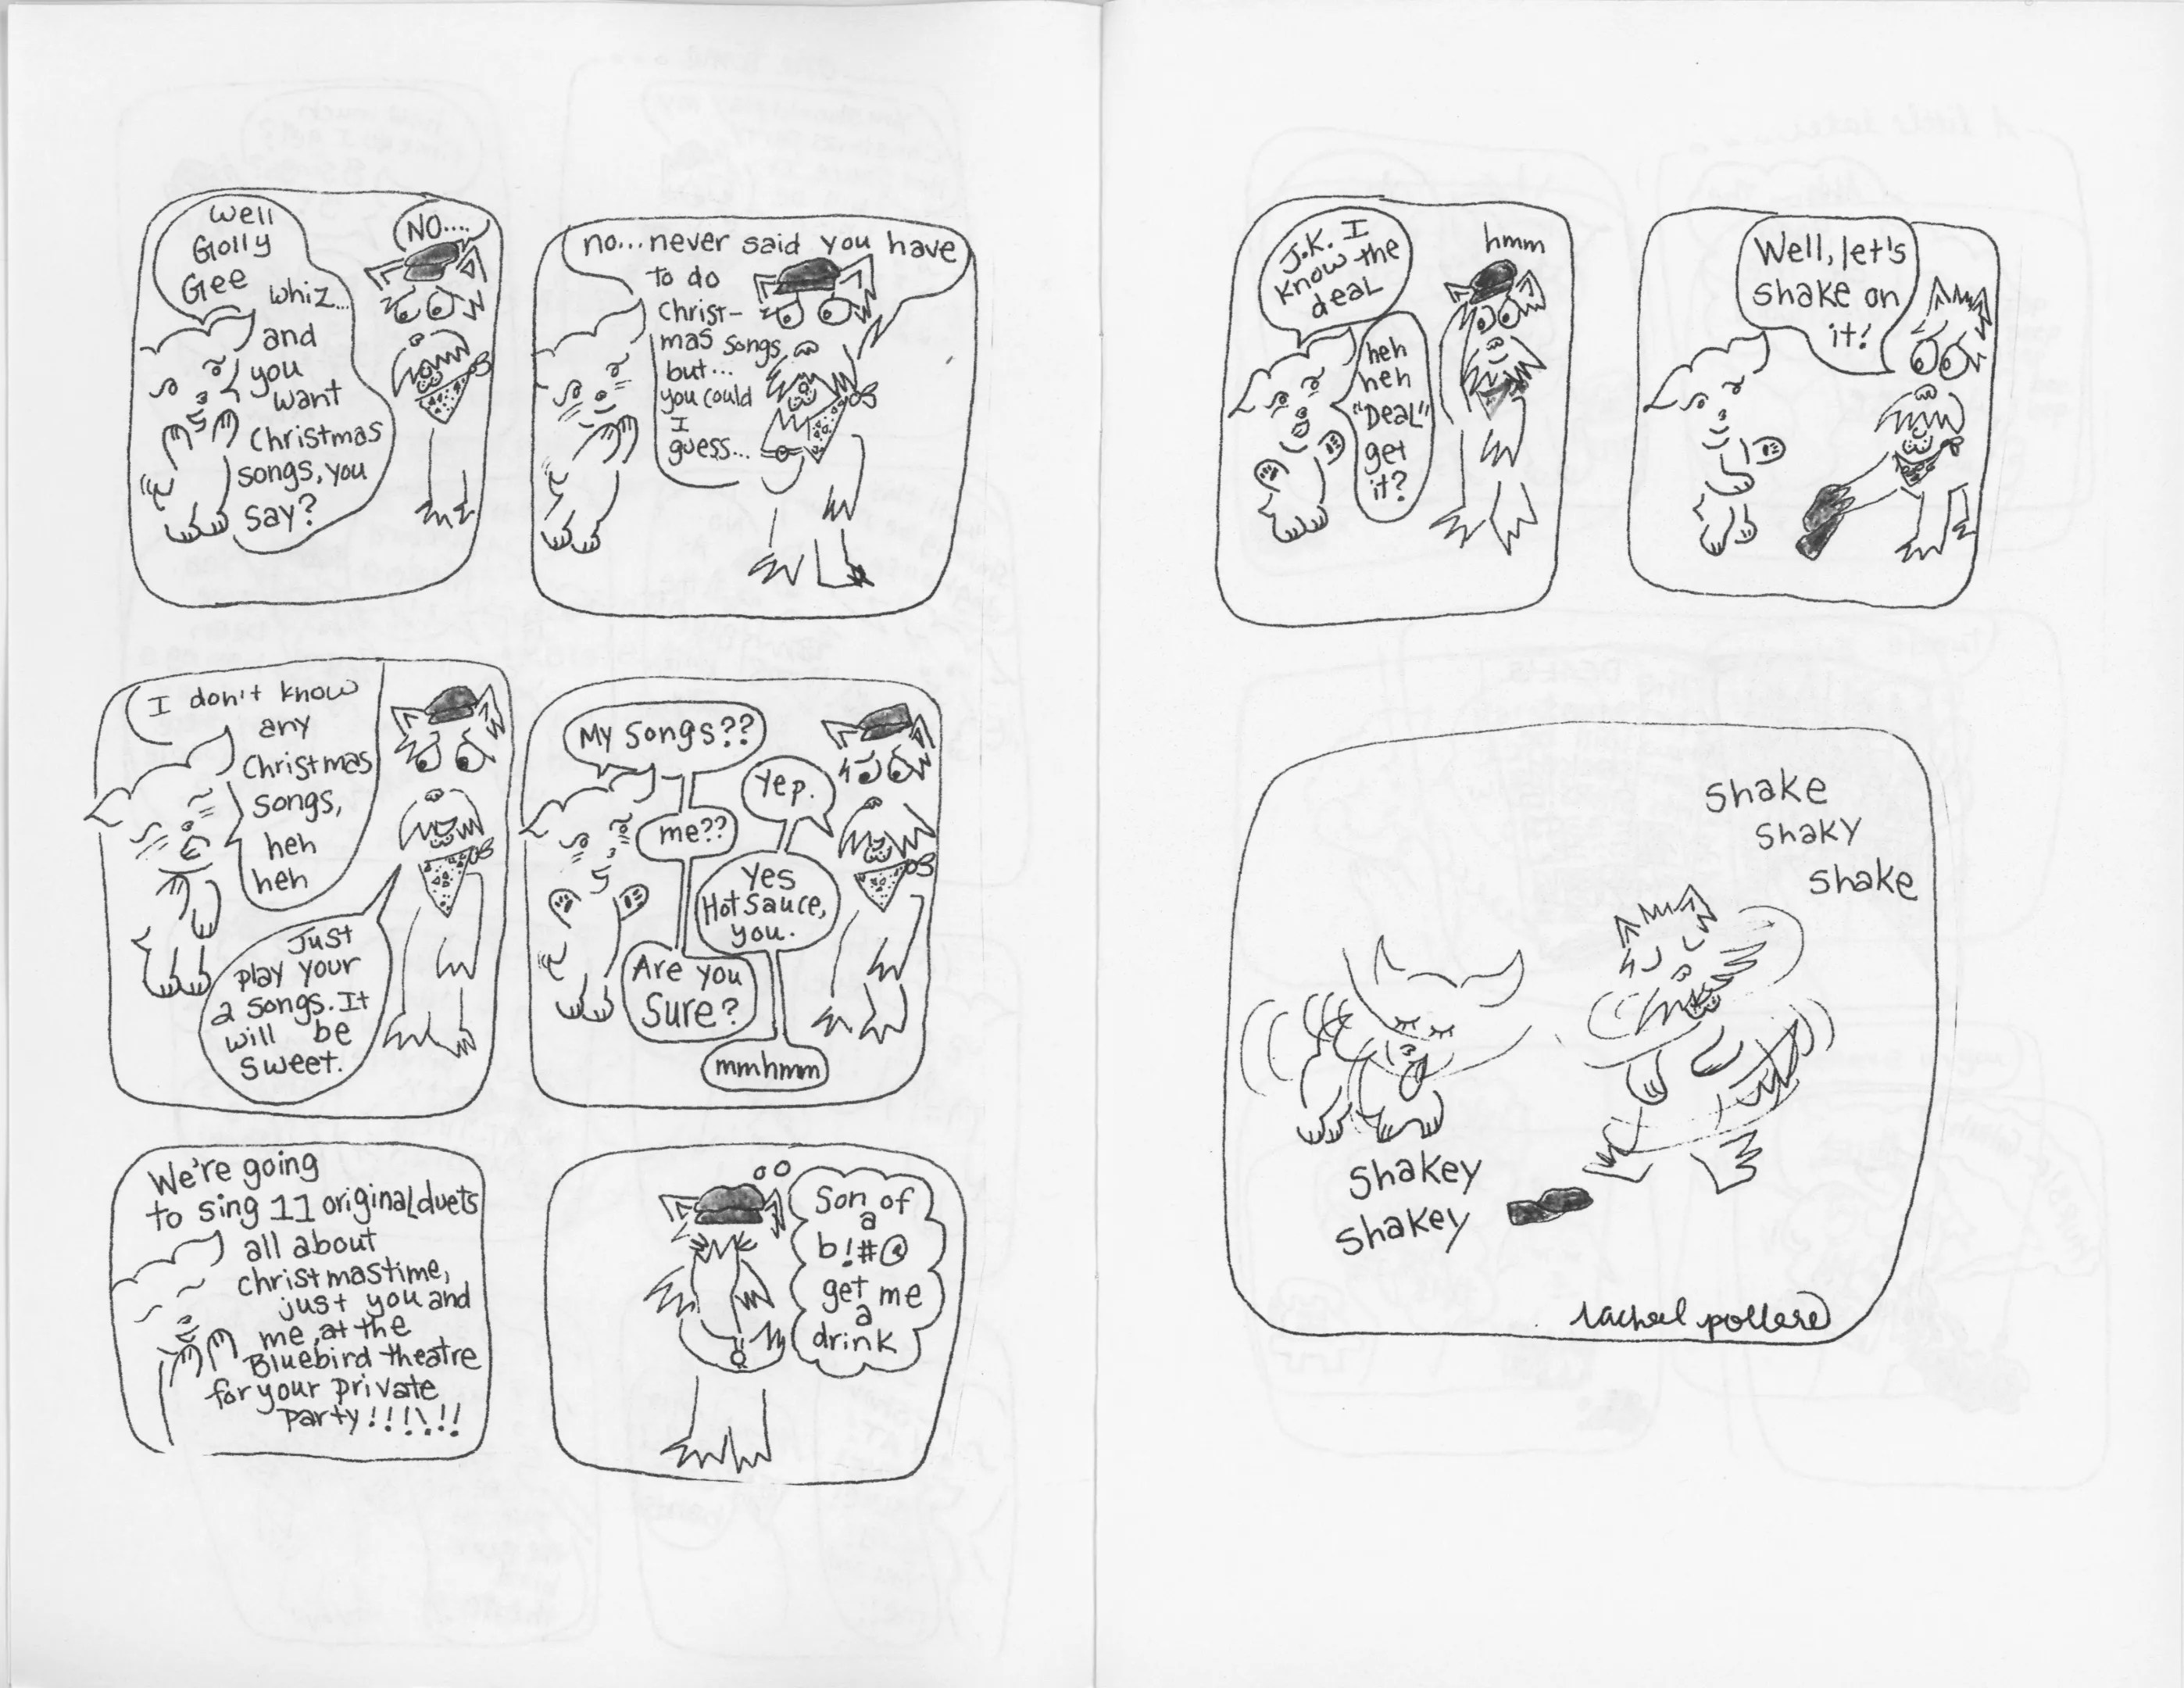 Well
Golly
Gee whiz...
and
you
want
Christmas
songs, you
say?
NO....
no...never said you have
to do
Christ-
mas songs
but...
you could
I
guess...
I don't know
any
Christmas
songs,
heh
heh
Just
play your
2 songs. It
will be
sweet.
My songs??
Yep.
me??
Yes
Hot Sauce,
you.
Are you
Sure?
mmhmm
We're going
to sing 11 original duets
all about
christmastime,
just you and
me, at the
Bluebird theatre
for your private
party!!!!!!
Son of
a
b!#@
get me
a
drink
J.K. I
know the
deal
heh
heh
"Deal"
get
it?
hmm
Well, let's
shake on
it!
Shake
Shaky
Shake
Shakey
Shakey